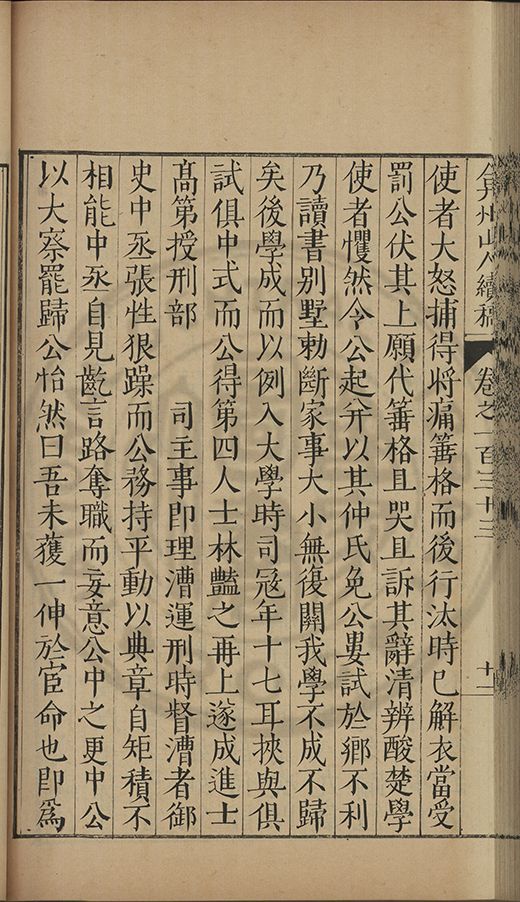 弇州山人續稿 卷之一百三十三 十一
使者大怒捕得将痛箠格而後行汰時已解衣當受
罰公伏其上願代箠格且哭且訴其辭清辨酸楚學
使者懼然令公起并以其仲氏免公婁試於鄉不利
乃讀書别墅勅斷家事大小無復關我學不成不歸
矣後學成而以例入大學時司冦年十七耳挾與俱
試俱中式而公得第四人士林豔之再上遂成進士
髙第授刑部 司主事即理漕運刑時督漕者御
史中丞張性狠躁而公務持平動以典章自矩積不
相能中丞自見齕言路奪職而妄意公中之更中公
以大察罷歸公怡然曰吾未獲一伸於宦命也即爲